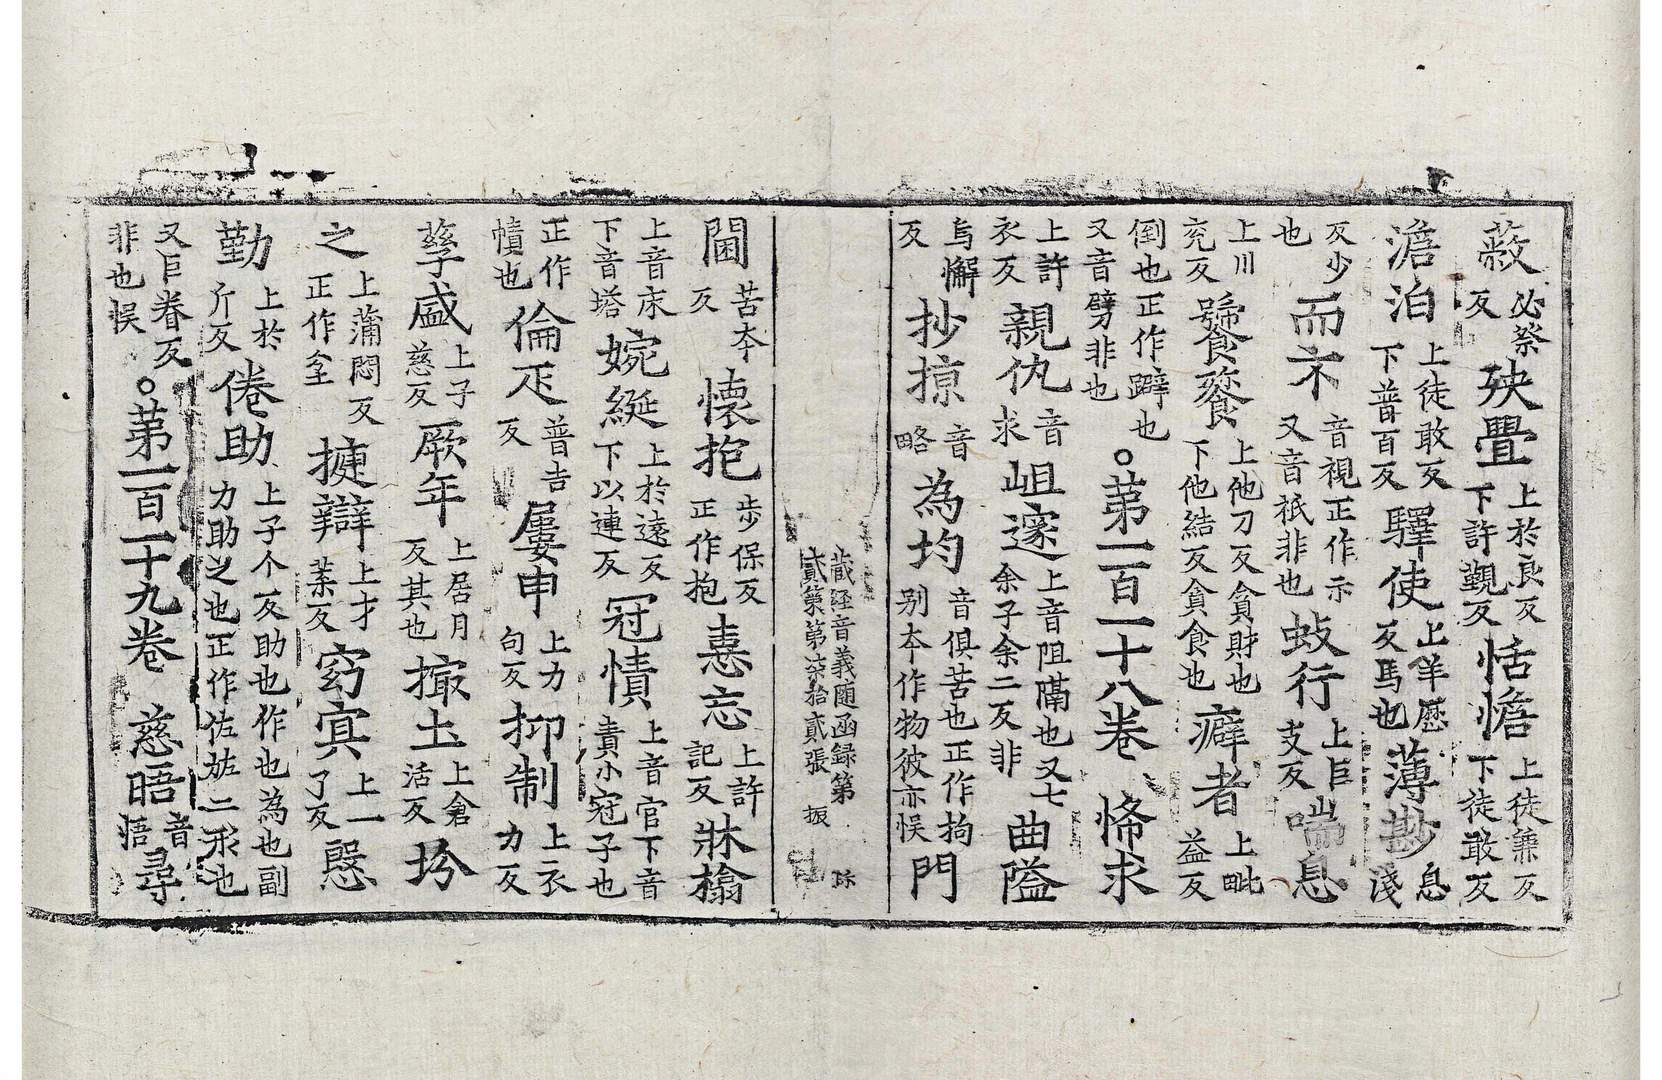 蔽必祭反殃疊上於良反下許覲反恬憺上徒蒹反下徒敢反
澹泊上徒敢反下普百反驛使上羊歷反馬也薄尠息淺
反少也而不音視正作示又音祇非也蚑行上巨支反喘息
上川兖反饕餮上他刀反貪財也下他結反貪食也癖者上毗益反
倒也正作躃也又音劈非也。苐一百一十八卷悕求
上許衣反親仇音求岨邃上音阻隔也又七余子余二反非曲隘
烏懈反抄掠音略為均音俱苦也正作拘别夲作物彼亦悮門
藏經音義随函録第貳第柒拾貳張 振
閫苦夲反懷抱步保反正作抱憙忘上許記反牀榻
上音床下音塔婉綖上於遠反下以連反冠幘上音官下音責小冠子也
正作幘也倫疋普吉反屢申上力句反抑制上衣力反
孳盛上子慈反厥年上居月反其也撮土上倉活反坋
之上蒲悶反正作坌揵辯上才葉反窈㝠上一了反慇
勤上於斤反倦助上子个反助也作也為也副力助之也正作佐㔫二形也
又巨卷反非也悮。苐一百一十九卷慈晤音悟尋